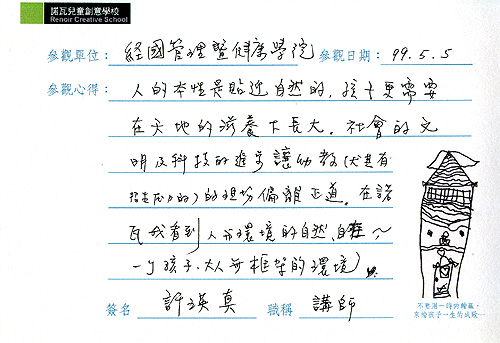 諾瓦兒童創意學校
Renoir Creative School
參觀單位： 經國管理暨健康學院 參觀日期： 99.5.5
參觀心得： 人的本性是貼近自然的，孩子更需要
在天地的滋養下長大。社會的文
明及科技的進步讓幼教(尤其有
的)的現場偏離正道。在諾
瓦我看到人和環境的自然、自在～
一個孩子、大人無框架的環境
簽名 許瑛真 職稱 講師
不要用一時的輸贏，
來論孩子一生的成敗…